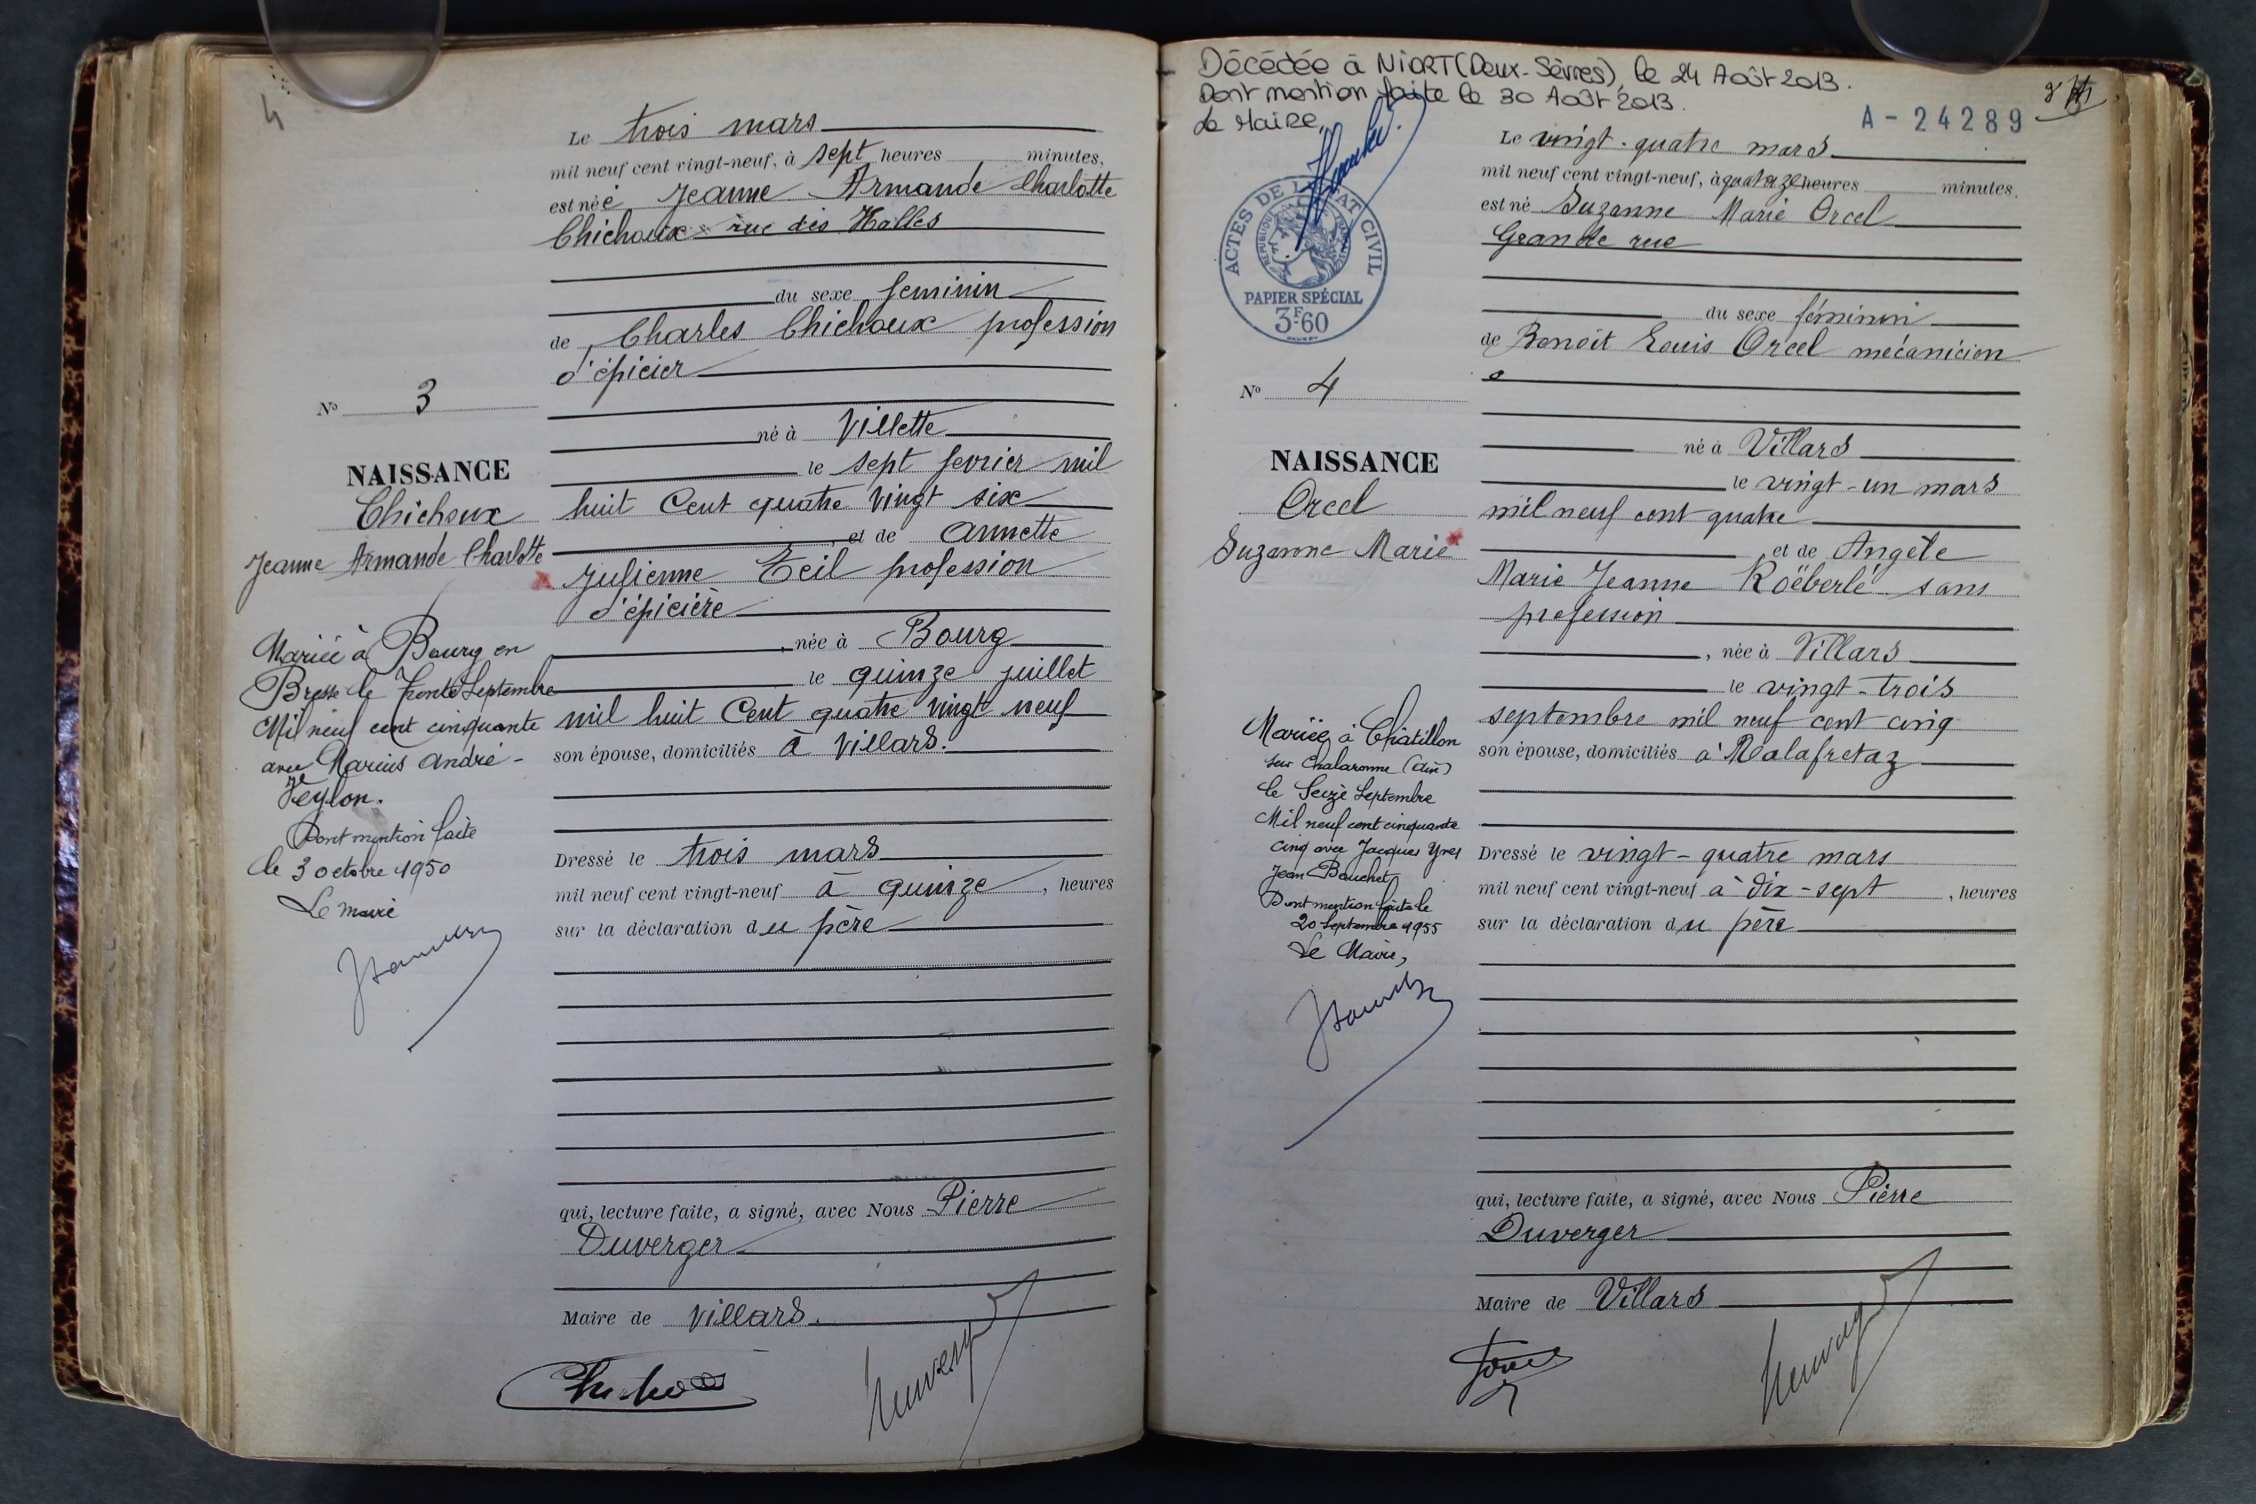 4
Le trois mars
mil neuf cent vingt-neuf, à sept heures minutes,
est née Jeanne Armande Charlotte
Chichoux rue des Halles
du sexe feminin
de Charles Chichoux profession
d'épicier
né à Villette
le sept fevrier mil
huit Cent quatre vingt six
, et de Annette
Julienne Teil profession
d'épicière
, née à Bourg
le quinze juillet
mil huit Cent quatre vingt neuf
son épouse, domiciliés à Villars.
Dressé le trois mars
mil neuf cent vingt-neuf à quinze , heures
sur la déclaration du père
qui, lecture faite, a signé, avec Nous Pierre
Duverger
Maire de Villars.
No 3
NAISSANCE
Chichoux
Jeanne Armande Charlotte
Mariée à Bourg en
Bresse le trente Septembre
Mil neuf cent cinquante
avec Marius André -
Zeylon.
Dont mention faite
le 3 octobre 1950
Le maire
Décédée à NIORT (Deux-Sèvres), le 24 Août 2013.
Dont mention faite le 30 Août 2013.
Le Maire,
A - 24289
ACTES DE L'ETAT CIVIL
PAPIER SPÉCIAL
3F60
No 4
NAISSANCE
Orcel
Suzanne Marie
Mariée à Châtillon
sur Chalaronne (Ain)
le Seize Septembre
Mil neuf cent cinquante
cinq avec Jacques Yves
Jean Bouchet
Dont mention faite le
20 Septembre 1955
Le Maire,
Le vingt-quatre mars
mil neuf cent vingt-neuf, à quatorze heures minutes.
est né Suzanne Marie Orcel
Grande rue
du sexe féminin
de Benoit Louis Orcel mécanicien
né à Villars
le vingt-un mars
mil neuf cent quatre
et de Angèle
Marie Jeanne Roëberlé sans
profession
, née à Villars
le vingt-trois
septembre mil neuf cent cinq
son épouse, domiciliés à Malafretaz
Dressé le vingt-quatre mars
mil neuf cent vingt-neuf à dix-sept , heures
sur la déclaration du père
qui, lecture faite, a signé, avec Nous Pierre
Duverger
Maire de Villars